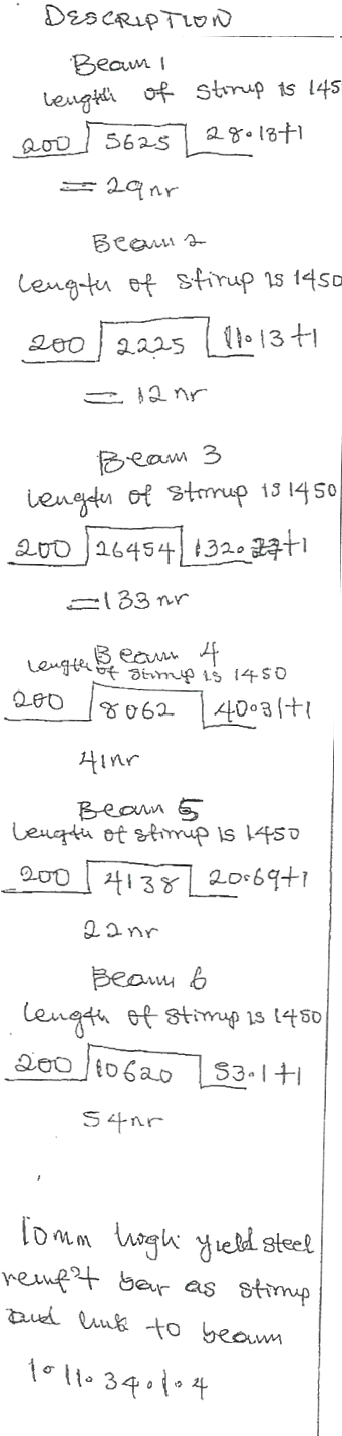 DESCRIPTION
Beam 1
length of stirrup is 145
200 5625 28.13+1
= 29nr
Beam 2
length of stirup is 1450
200 2225 11.13+1
= 12 nr
Beam 3
length of stirrup is 1450
200 26454 132.27+1
= 133 nr
Beam 4
length of stirrup is 1450
200 8062 40.31+1
41nr
Beam 5
length of stirrup is 1450
200 4138 20.69+1
22nr
Beam 6
length of stirrup is 1450
200 10620 53.1+1
54nr
10mm high yield steel
reinf't bar as stirrup
and link to beam
1.11.34.1.4